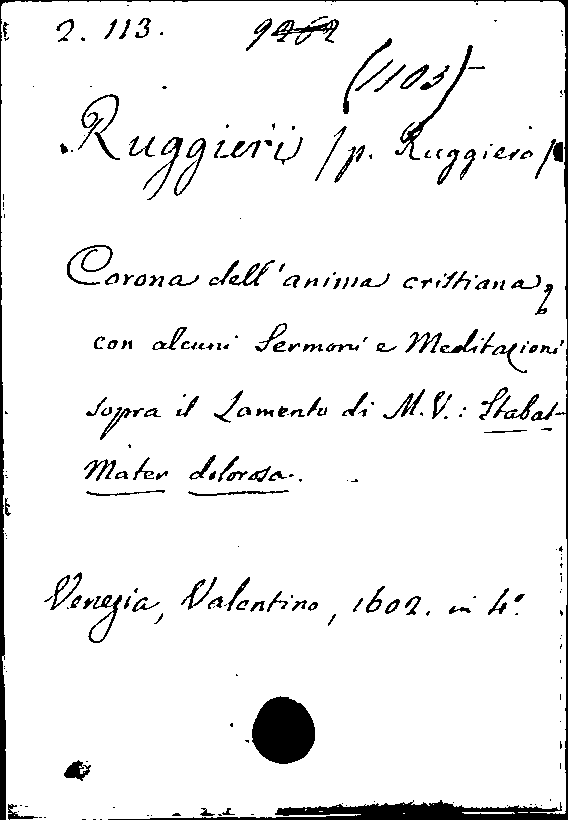 2. 113. 9262
(1103)
Ruggieri /p. Ruggiero/
Corona dell'anima cristiana,
con alcuni Sermoni e Meditazioni
sopra il Lamento di M.V.: Stabat
Mater dolorosa.
Venezia, Valentino, 1602. in 4°.